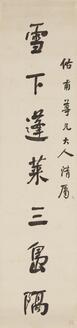 佑甫尊兄大人清屬
雪下蓬萊三島隔